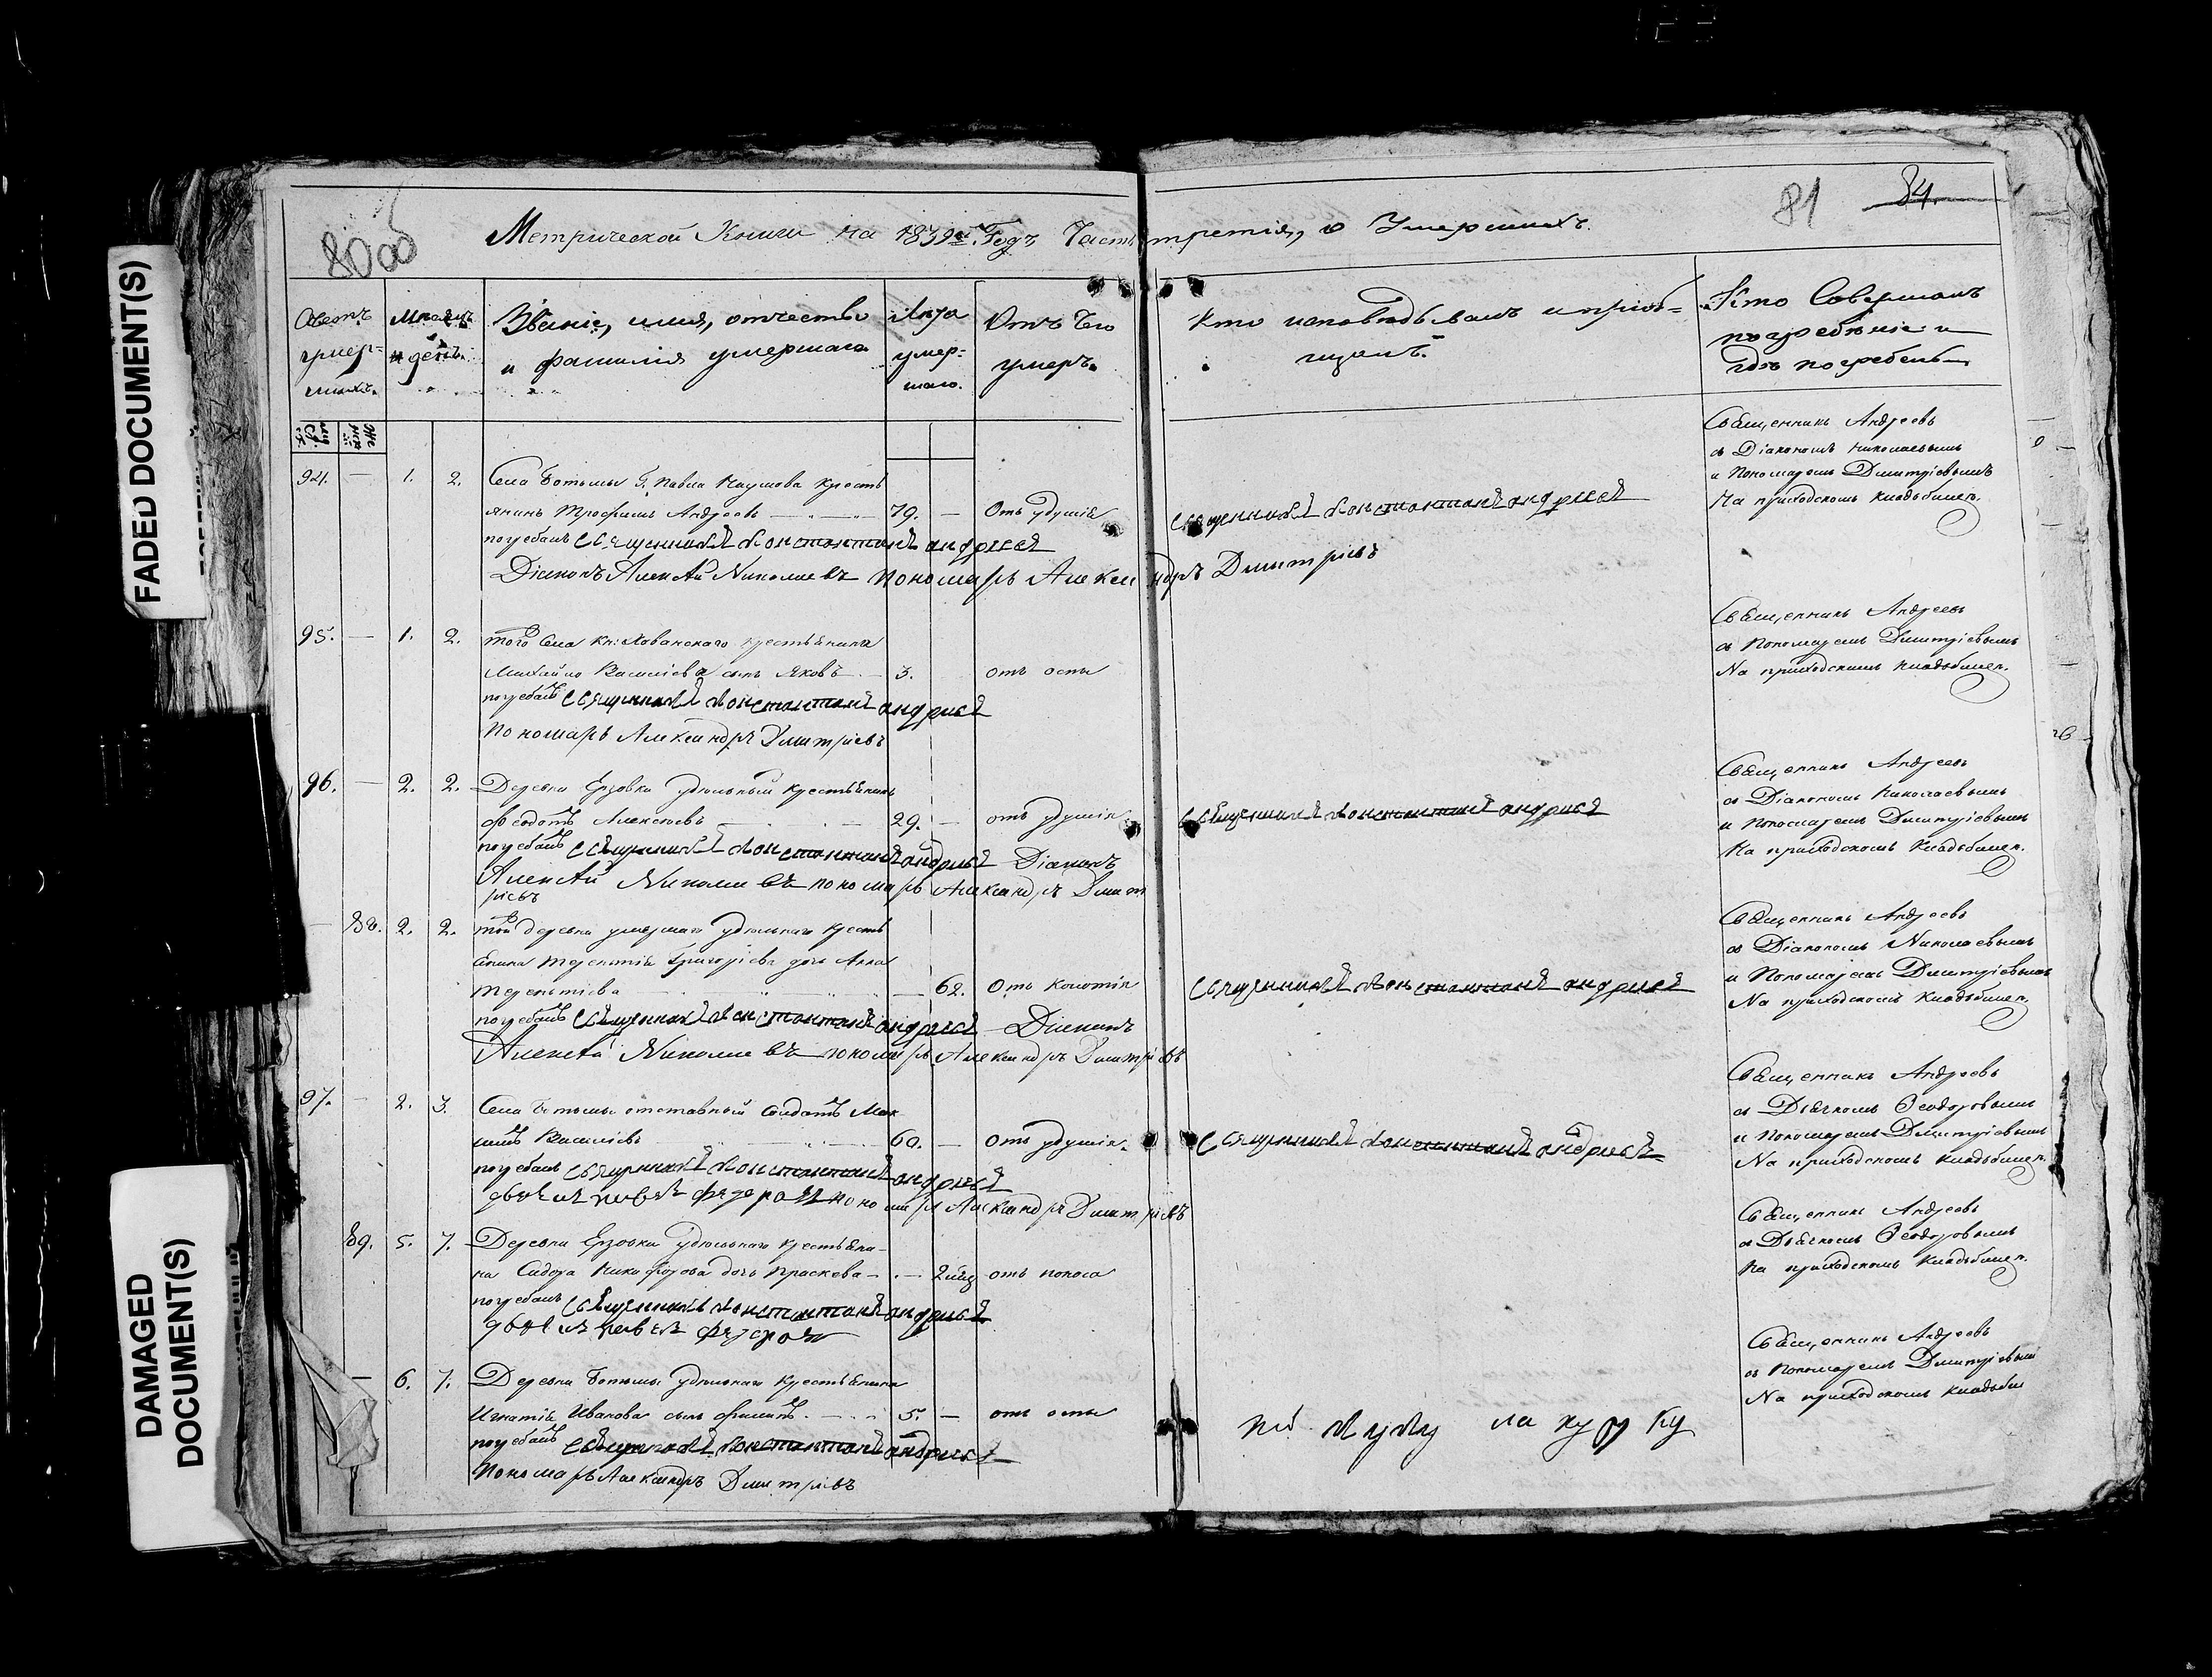 FADED DOCUMENT(S)
DAMAGED
DOCUMENT(S)
80 об
81
84.
Метрической Книги на 1839й Годъ Часть третія, о Умершихъ.
Счетъ умер= шихъ.
Мѣсяцъ и день.
Званіе, имя, отчество и фамилія умершаго
Лѣта умер= шаго.
Отъ чего умеръ.
Кто исповѣдывалъ и пріоб= щалъ.
Кто Совершалъ погребѣніе и гдѣ погребены
94. — 1. 2. Села Ботьмы Г. Павла Наумова крестъ
янинъ Трофимъ Андреевъ 79. — Отъ удушія
погребалъ священникъ Константинъ Андреевъ
Діаконъ Алексѣй Николаевъ пономарь Александръ Дмитріевъ
священникъ Константинъ Андреевъ
Священникъ Андреевъ
съ Діакономъ Николаевымъ
и Пономаремъ Дмитріевымъ
На приходскомъ кладбищѣ.
95. — 1. 2. того Села Кн: Хованскаго крестьянина
Михайло Васильева сынъ Яковъ 3. отъ оспы
погребалъ священникъ Константинъ Андреевъ
пономарь Александръ Дмитріевъ
Священникъ Андреевъ
съ Пономаремъ Дмитріевымъ
На приходскомъ кладбищѣ.
96. — 2. 2. Деревни Ерзовки удѣльный крестьянинъ
Федотъ Алексѣевъ 29. — отъ удушія
погребалъ священникъ Константинъ Андреевъ Діаконъ
Алексѣй Николаевъ пономарь Александръ Дмит
ріевъ
священникъ Константинъ Андреевъ
Священникъ Андреевъ
съ Діакономъ Николаевымъ
и Пономаремъ Дмитріевымъ
На приходскомъ кладбищѣ.
— 88. 2. 2. той деревни умершаго удѣльнаго кресть
янина Терентія Григорьева дочь Анна
Терентьева 62. Отъ
погребалъ священникъ Константинъ Андреевъ Діаконъ
Алексѣй Николаевъ пономарь Александръ Дмитріевъ
священникъ Константинъ Андреевъ
Священникъ Андреевъ
съ Діакономъ Николаевымъ
и Пономаремъ Дмитріевымъ
На приходскомъ кладбищѣ.
97. — 2. 3. Села Ботьмы отставный солдатъ Мак
симъ Васильевъ 60. — Отъ удушія.
погребалъ священникъ Константинъ Андреевъ
пономарь Александръ Дмитріевъ
священникъ Константинъ Андреевъ
Священникъ Андреевъ
съ Дьячкомъ Ѳеодоровымъ
и Пономаремъ Дмитріевымъ
На приходскомъ кладбищѣ.
89. 5. 7. Деревни Ерзовки удѣльнаго крестьяни
на Сидора Никифорова дочь Прасковья — 2 мѣц отъ поноса
погребалъ священникъ Константинъ Андреевъ
Священникъ Андреевъ
съ Дьячкомъ Ѳеодоровымъ
На приходскомъ кладбищѣ.
— 6. 7. Деревни Ботьмы удѣльнаго крестьянина
Игнатія Иванова сынъ Филипъ 5. — отъ оспы
погребалъ священникъ Константинъ Андреевъ
пономарь Александръ Дмитріевъ
Священникъ Андреевъ
съ Пономаремъ Дмитріевымъ
На приходскомъ кладби